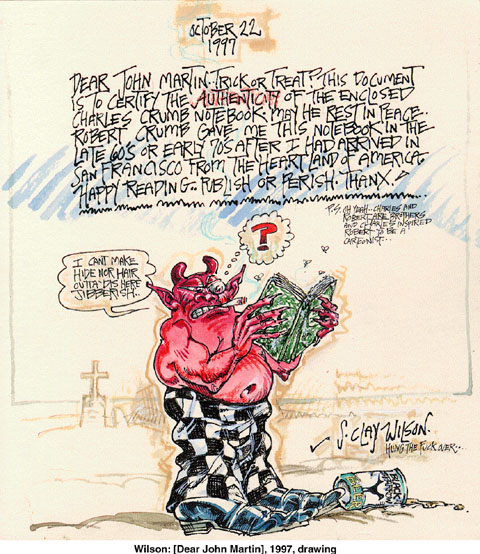 OCTOBER 22
1997
DEAR JOHN MARTIN.. TRICK OR TREAT? THIS DOCUMENT
IS TO CERTIFY THE AUTHENTICITY OF THE ENCLOSED
CHARLES CRUMB NOTEBOOK. MAY HE REST IN PEACE..
ROBERT CRUMB GAVE ME THIS NOTEBOOK IN THE
LATE 60'S OR EARLY 70'S AFTER I HAD ARRIVED IN
SAN FRANCISCO FROM THE HEARTLAND OF AMERICA.
HAPPY READING.. PUBLISH OR PERISH. THANX.
P.S. OH YEAH.. CHARLES AND
ROBERT ARE BROTHERS
AND CHARLES INSPIRED
ROBERT TO BE A
CARTOONIST...
?
I CAN'T MAKE
HIDE NOR HAIR
OUTTA DIS HERE
JIBBERISH..
S. CLAY WILSON.
HUNG THE FUCK OVER...
Wilson: [Dear John Martin], 1997, drawing